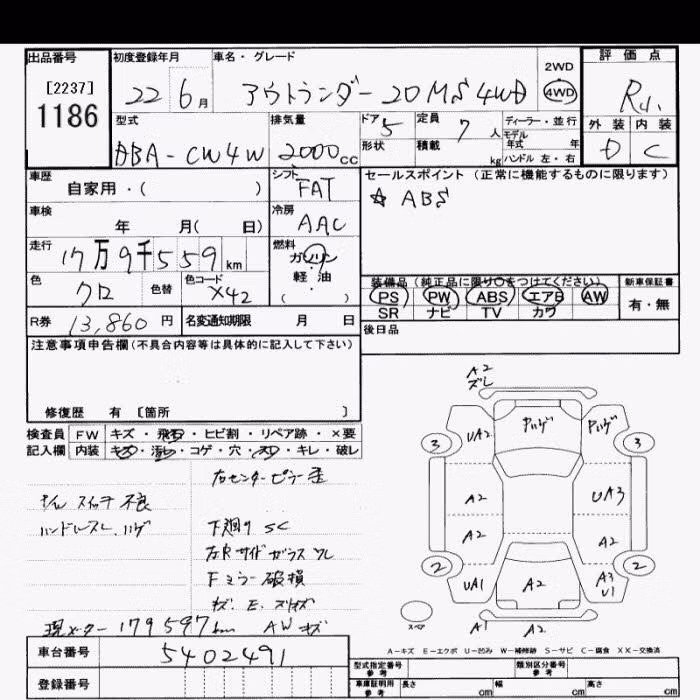 出品番号 初度登録年月 車名・グレード 評価点
[2237] 1186
22 6月 アウトランダー 20MS 4WD 2WD 4WD
型式 排気量 ドア 5 定員 7人 ディーラー・並行
DBA-CW4W 2000cc 形状 積載 kg モデル年式 年 ハンドル 左・右
外装 内装
D C
車歴 自家用・( ) シフト FAT セールスポイント(正常に機能するものに限ります)
☆ ABS
車検 年 月( 日) 冷房 AAC
走行 17万9千559km 燃料 ガソリン 軽・油 ( )
色 クロ 色替 色コード X42
装備品(純正品に限り○をつけてください) 新車保証書
PS PW ABS エアB AW 有・無
SR ナビ TV カワ
R券 13,860円 名変通知期限 月 日 後日品
注意事項申告欄(不具合内容等は具体的に記入して下さい)
修復歴 有 [箇所 ]
検査員 FW キズ・飛石・ヒビ割・リペア跡・×要
記入欄 内装 キズ・汚れ・コゲ・穴・スレ・キレ・破レ
右センターピラー歪
スイッチ不良
ハンドルスレ、ハゲ
下廻りSC
左Rサイドガラスワレ
Fミラー破損
現メーター 179597km AWキズ
A2
ズレ
UA2 ハゲ ハゲ
3 3
A2 UA3
A2 A2
2 2
UA1 A2 A3 U1
A1 A2
スペア
A-キズ E-エクボ U-凹み W-補修跡 S-サビ C-腐食 XX-交換済
車台番号 5402491
登録番号
型式指定番号 参考 類別区分番号 参考
車庫証明用 参考 長さ cm 幅 cm 高さ cm